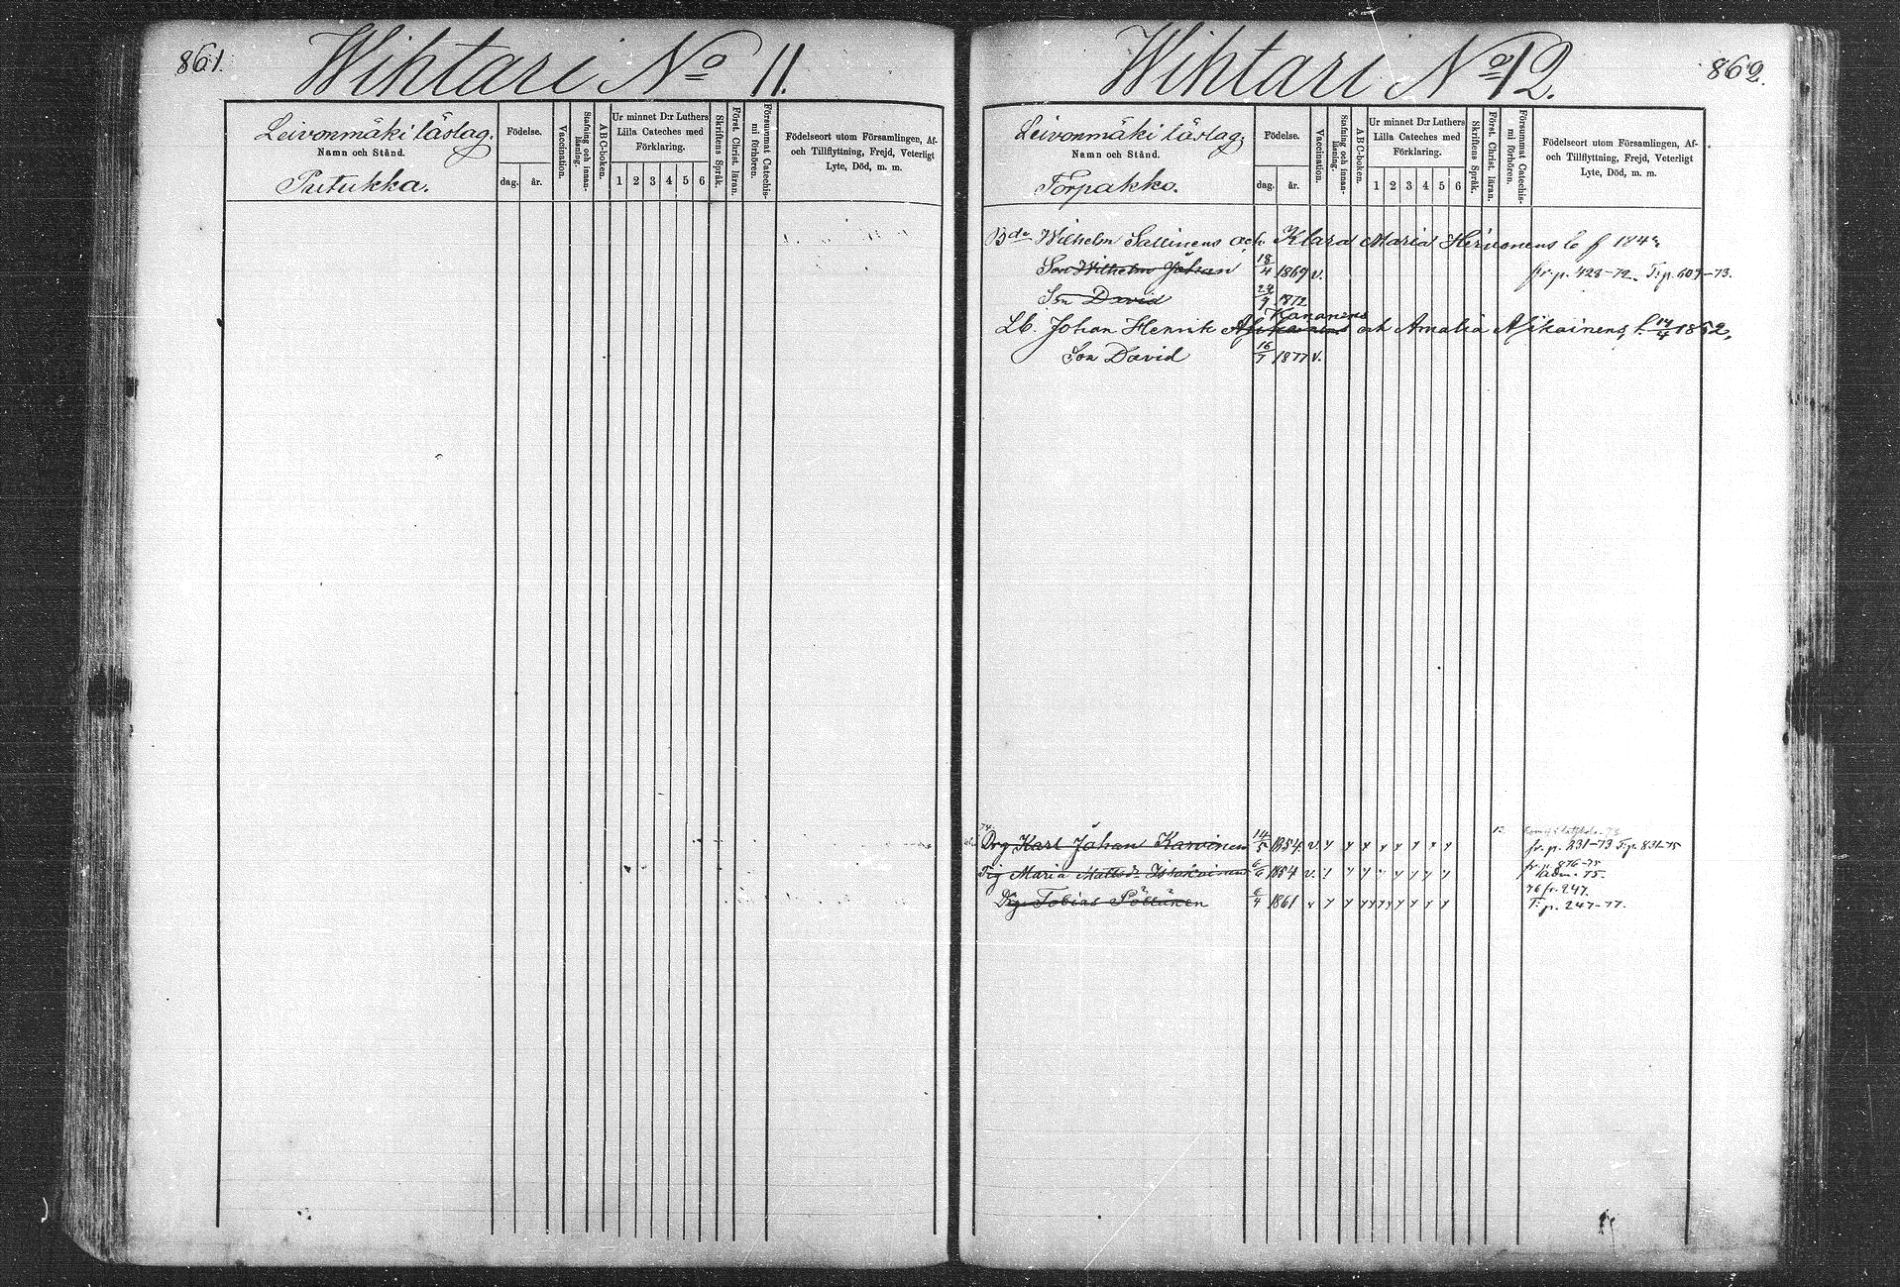 861.
Wihtari No 11.
Leivonmäki läslag.
Namn och Stånd.
Putukka.
Födelse.
dag. år.
Vaccination.
Stafning och innan-läsning.
A B C-boken.
Ur minnet D:r Luthers Lilla Cateches med Förklaring.
1 2 3 4 5 6
Skriftens Språk.
Först. Christ. läran.
Försummat Catechismi förhören.
Födelseort utom Församlingen, Af-
och Tillflyttning, Frejd, Veterligt
Lyte, Död, m. m.
Wihtari No 12.
862.
Leivonmäki läslag
Namn och Stånd.
Törpakko.
Födelse.
dag. år.
Vaccination.
Stafning och innan-läsning.
A B C-boken.
Ur minnet D:r Luthers Lilla Cateches med Förklaring.
1 2 3 4 5 6
Skriftens Språk.
Först. Christ. läran.
Försummat Catechismi förhören.
Födelseort utom Församlingen, Af-
och Tillflyttning, Frejd, Veterligt
Lyte, Död, m. m.
Wilhelm Sallinens och Klara Maria Hirvonens
Son Wilhelm Johan 18/4 1869 v. fr. p. 428-72. T. p. 607-73.
Son David 24/9 1872
Kananens
Lb. Johan Henrik och Amalia Asikainens f. 14/4 1852,
Son David 16/7 1877 v.
74
Drg Karl Johan Karvinen 14/5 1854 v. fr. p. 231-73 T. p. 831-75
fr. p. 876-75
Pig Maria Mattsdr 6/6 1854 v. 75.
76 fr. 247.
Drg Tobias Pöllänen 6/4 1861 v T. p. 247-77.